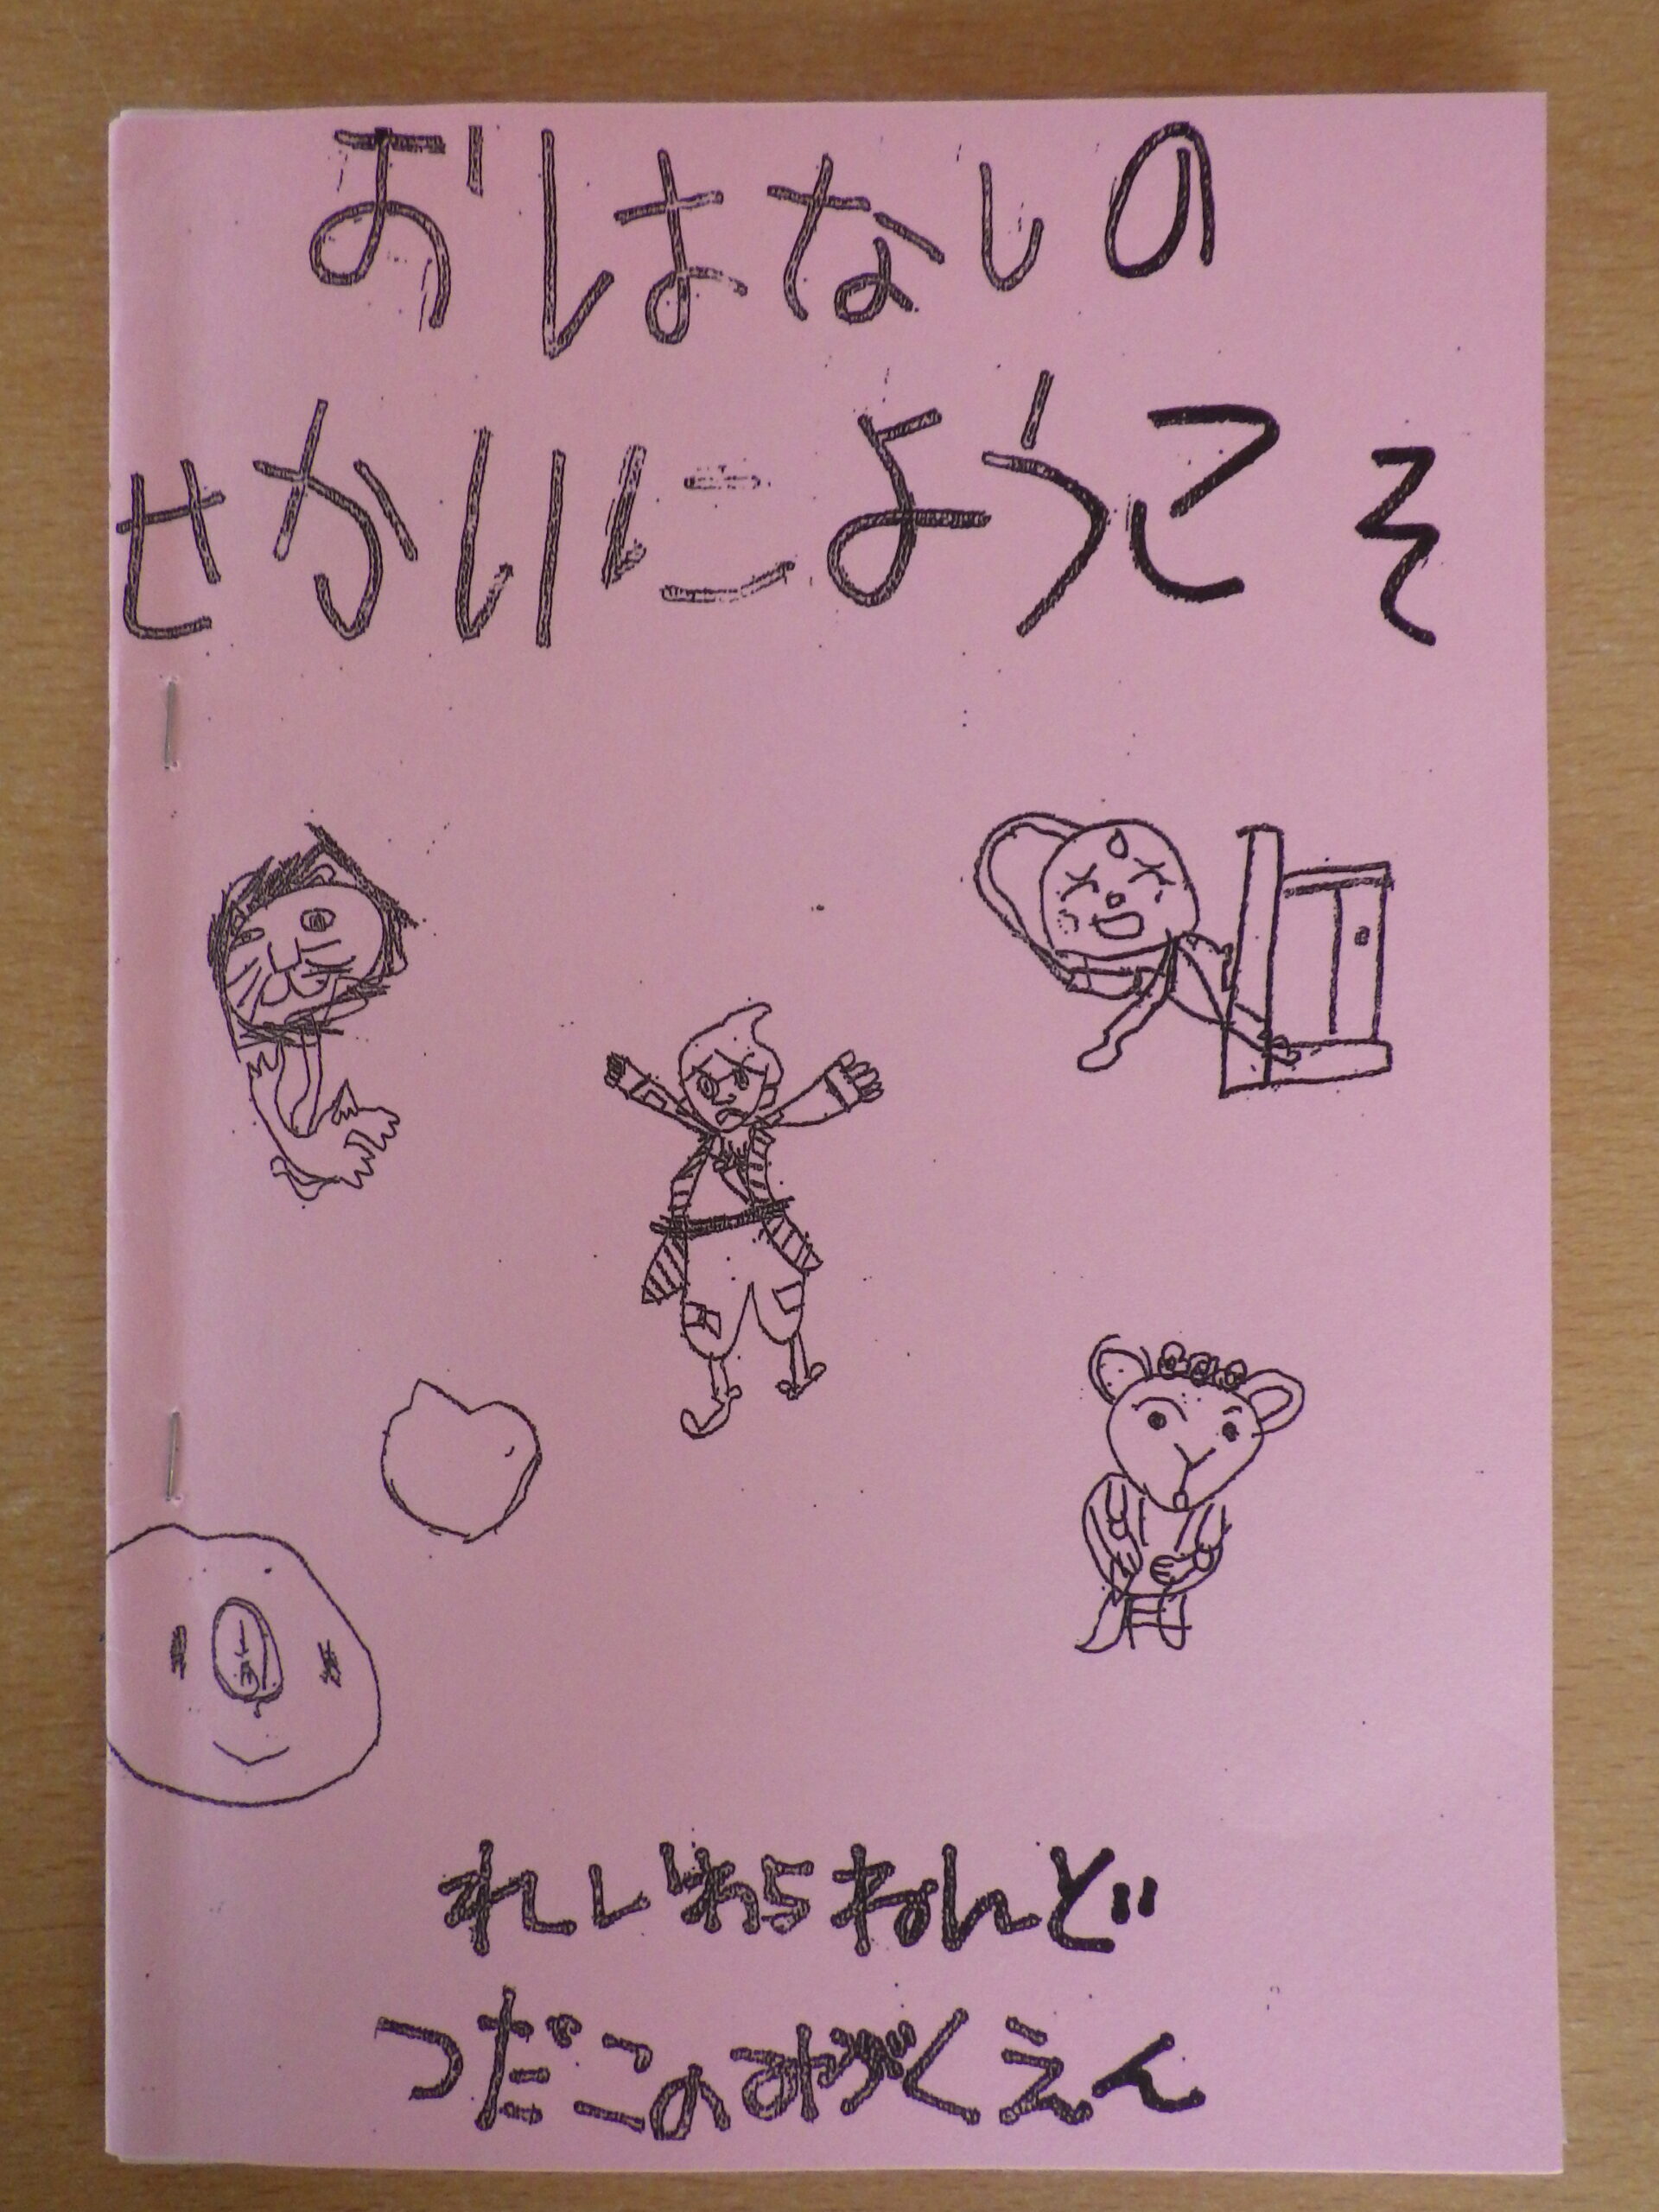 おはなしの
せかいにようこそ
れいわらねんど
つだこのみがくえん